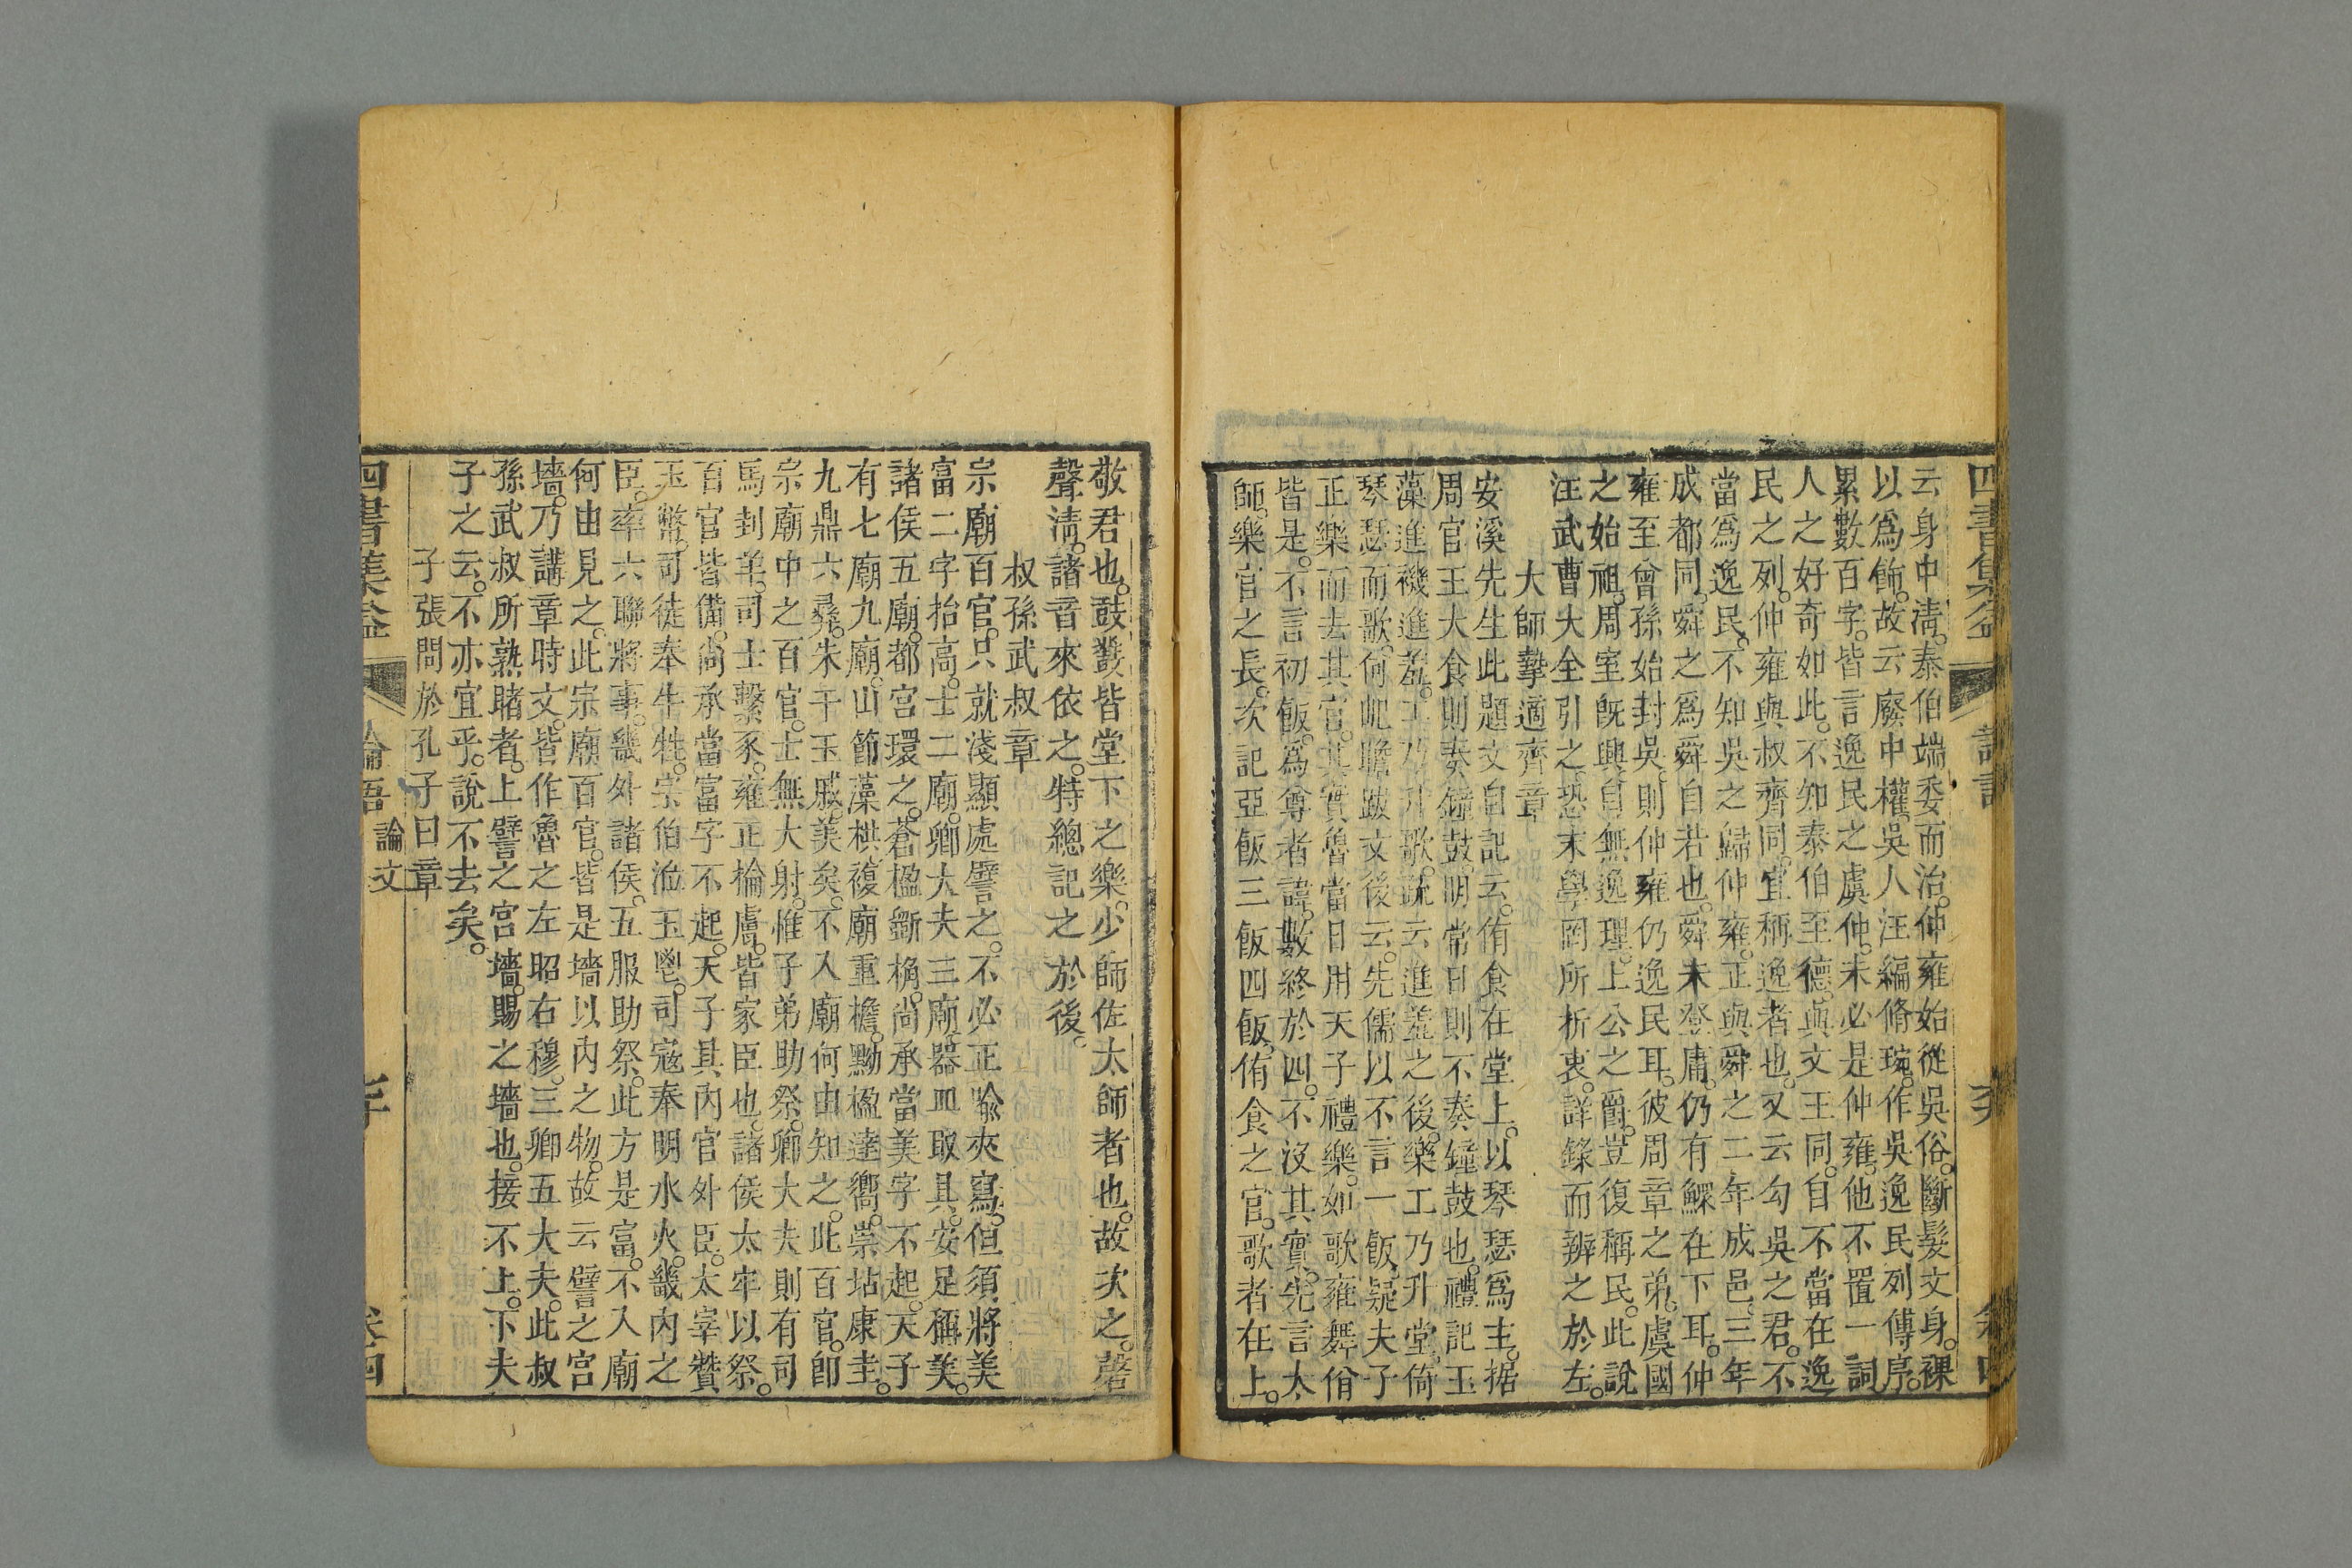 云身中清。泰伯端委而治。仲雍始從吳俗。斷髮文身。裸
以為飾。故云廢中權。吳人汪編脩琬。作吳逸民列傳序。
累數百字。皆言逸民之虞仲。未必是仲雍。他不置一詞。
人之好奇如此。不知泰伯至德。與文王同。自不當在逸
民之列。仲雍與叔齊同。宜稱逸者也。又云勾吳之君。不
當為逸民。不知吳之歸仲雍。正與舜之二年成邑。三年
成都同。舜之為舜自若也。舜未登庸。仍有鰥在下耳。仲
雍至曾孫始封吳。則仲雍仍逸民耳。彼周章之弟。虞國
之始祖。周室既興。自無逸理。上公之爵。豈復稱民。此說
汪武曹大全引之。恐末學罔所折衷。詳錄而辨之於左。
大師摯適齊章
安溪先生此題文自記云。侑食在堂上。以琴瑟為主。据
周官王大食則奏鐘鼓。明常日則不奏鐘鼓也。禮記玉
藻進禨進羞。工乃升歌。疏云進羞之後。樂工乃升堂。倚
琴瑟而歌。何屺瞻跋文後云。先儒以不言一飯。疑夫子
正樂而去其官。其實魯當日用天子禮樂。如歌雍舞佾
皆是。不言初飯。為尊者諱。數終於四。不沒其實。先言太
師。樂官之長。次記亞飯三飯四飯。侑食之官。歌者在上。
四書集益
論語
卷四
敬君也。鼓鼗皆堂下之樂。少師佐太師者也。故次之。磬
聲清。諸音來依之。特總記之於後。
叔孫武叔章
宗廟百官。只就淺顯處譬之。不必正喻夾寫。但須將美
富二字抬高。士二廟。卿大夫三廟。器皿取具。安足稱美。
諸侯五廟。都宮環之。蒼楹斵桷。尚承當美字不起。天子
有七廟九廟。山節藻棁。複廟重檐。黝楹達嚮。崇坫康圭。
九鼎六彞。朱干玉戚。美矣。不入廟何由知之。此百官。即
宗廟中之百官。士無大射。惟子弟助祭。卿大夫則有司
馬刲羊。司士擊豕。雍正棆膚。皆家臣也。諸侯太牢以祭。
百官皆備。尚承當富字不起。天子具內官外臣。太宰贊
玉幣。司徒奉牛牲。宗伯涖玉鬯。司寇奉明水火。畿內之
臣。率六聯將事。畿外諸侯。五服助祭。此方是富。不入廟
何由見之。此宗廟百官。皆是墻以內之物。故云譬之宮
墻。乃講章時文。皆作魯之左昭右穆。三卿五大夫。此叔
孫武叔所熟睹者。上譬之宮墻。賜之墻也。接不上。下夫
子之云。不亦宜乎。說不去矣。
子張問於孔子曰章
四書集益
論語
論文
卷四